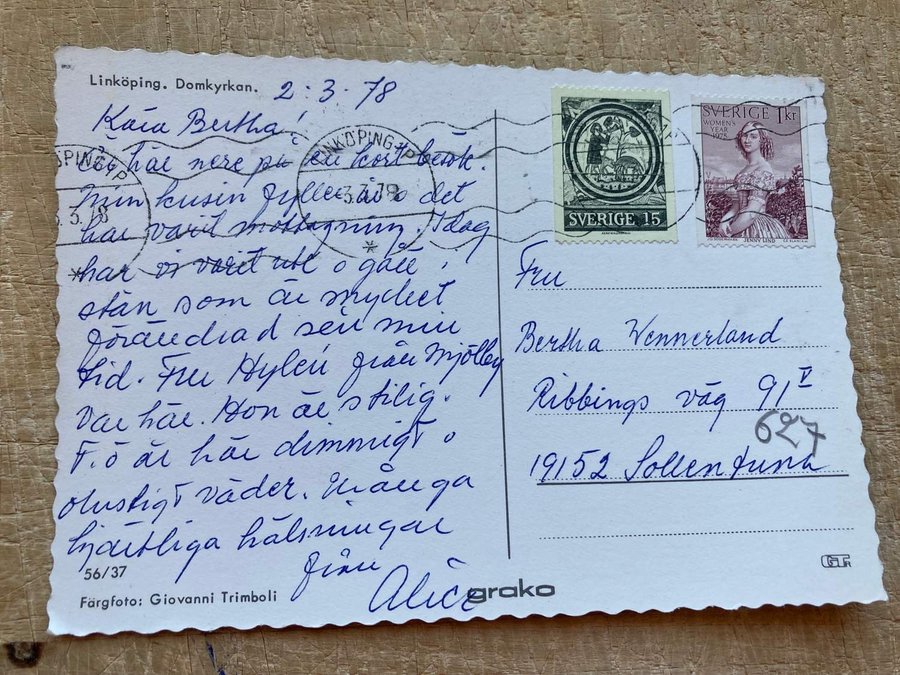 Linköping. Domkyrkan.
2.3.78
Kära Bertha!
Är här nere på en kort besök.
Min kusin fyller år o det
har varit mottagning. Idag
har vi varit ute o gått i
stan som är mycket
förändrad sen min
tid. Fru Hylén från Mjölby
var här. Hon är stilig.
F.ö är här dimmigt o
olustigt väder. Många
hjärtliga hälsningar
från
Alice
56/37
Färgfoto: Giovanni Trimboli
grako
LINKÖPING LP
3.3.78
SVERIGE 15
SVERIGE 1kr
WOMEN'S
YEAR
1975
JENNY LIND
Fru
Bertha Wennerland
Ribbings väg 91 V
627
19152 Sollentuna